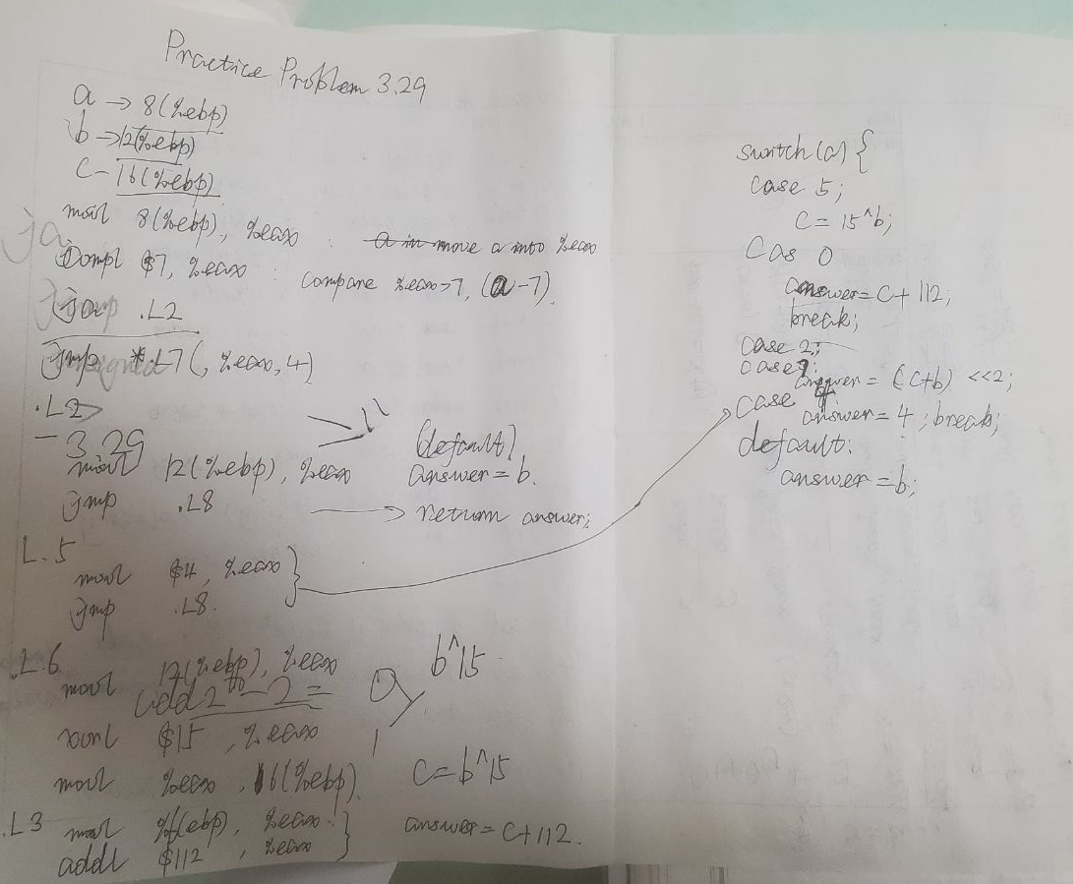 Practice Problem 3.29
a → 8(%ebp)
b → 12(%ebp)
c - 16(%ebp)
movl 8(%ebp), %eax : a in move a into %eax
ja
compl $7, %eax : compare %eax>7, (a-7)
ja .L2
jmp *.L7(, %eax, 4)
.L2
3.29
movl 12(%ebp), %eax
(default)
answer = b.
jmp .L8 → return answer;
L.5
movl $4, %eax
jmp .L8.
.L6
movl 12(%ebp), %eax
b^15
xorl $15, %eax
movl %eax, 16(%ebp)
c = b^15
.L3 movl
addl $112, %eax
answer = c+112.
switch(a) {
case 5;
c = 15^b;
Cas 0
answer = c+112;
break;
case 2;
case 7:
answer = (c+b) <<2;
case 4
answer = 4; break;
default:
answer = b;